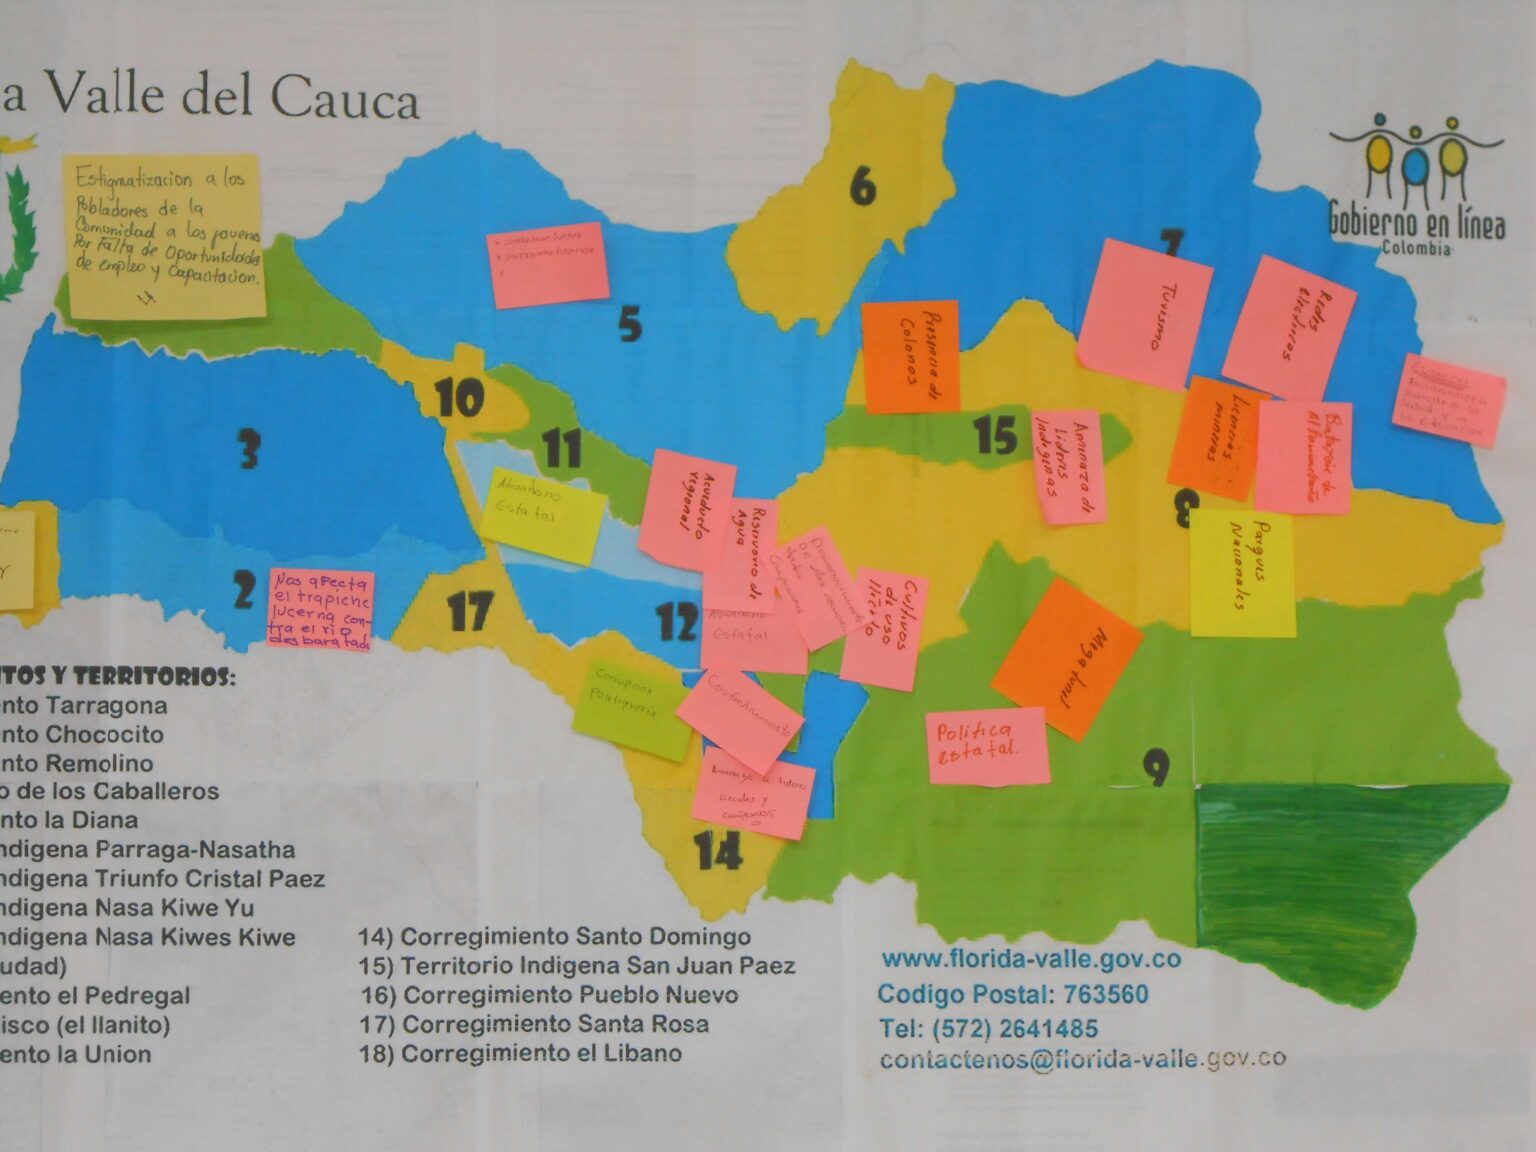 a Valle del Cauca
Estigmatizacion a los
Pobladores de la
Comunidad a los jovenes
Por Falta de Oportunidades
de empleo y Capacitacion.
14
6
7
Gobierno en línea
Colombia
5
Turismo
Redes
electricas
Presencia de
Colonos
10
11
3
15
Amenaza de
Lideres
Indigenas
Licencias
mineras
Batallón de
Alta montaña
8
Parques
Nacionales
Abandono
Estatal
Acueducto
regional
Reservorio de
Agua
Cultivos
de uso
Ilícito
2
Nos afecta
el trapiche
lucerna con-
tra el rio
desbaratado
17
12
Abandono
Estatal
Mega tunel
Politica
estatal.
9
politiqueria
Amenaza a lideres
sociales y
14
NTOS Y TERRITORIOS:
ento Tarragona
ento Chococito
ento Remolino
o de los Caballeros
ento la Diana
ndigena Parraga-Nasatha
ndigena Triunfo Cristal Paez
ndigena Nasa Kiwe Yu
ndigena Nasa Kiwes Kiwe
udad)
ento el Pedregal
isco (el llanito)
ento la Union
14) Corregimiento Santo Domingo
15) Territorio Indigena San Juan Paez
16) Corregimiento Pueblo Nuevo
17) Corregimiento Santa Rosa
18) Corregimiento el Libano
www.florida-valle.gov.co
Codigo Postal: 763560
Tel: (572) 2641485
contactenos@florida-valle.gov.co